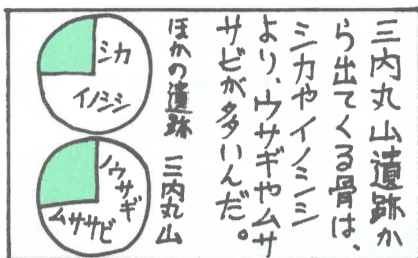 三内丸山遺跡か
ら出てくる骨は、
シカやイノシシ
より、ウサギやムサ
サビが多いんだ。
ほかの遺跡
シカ
イノシシ
三内丸山
ノウサギ
ムササビ